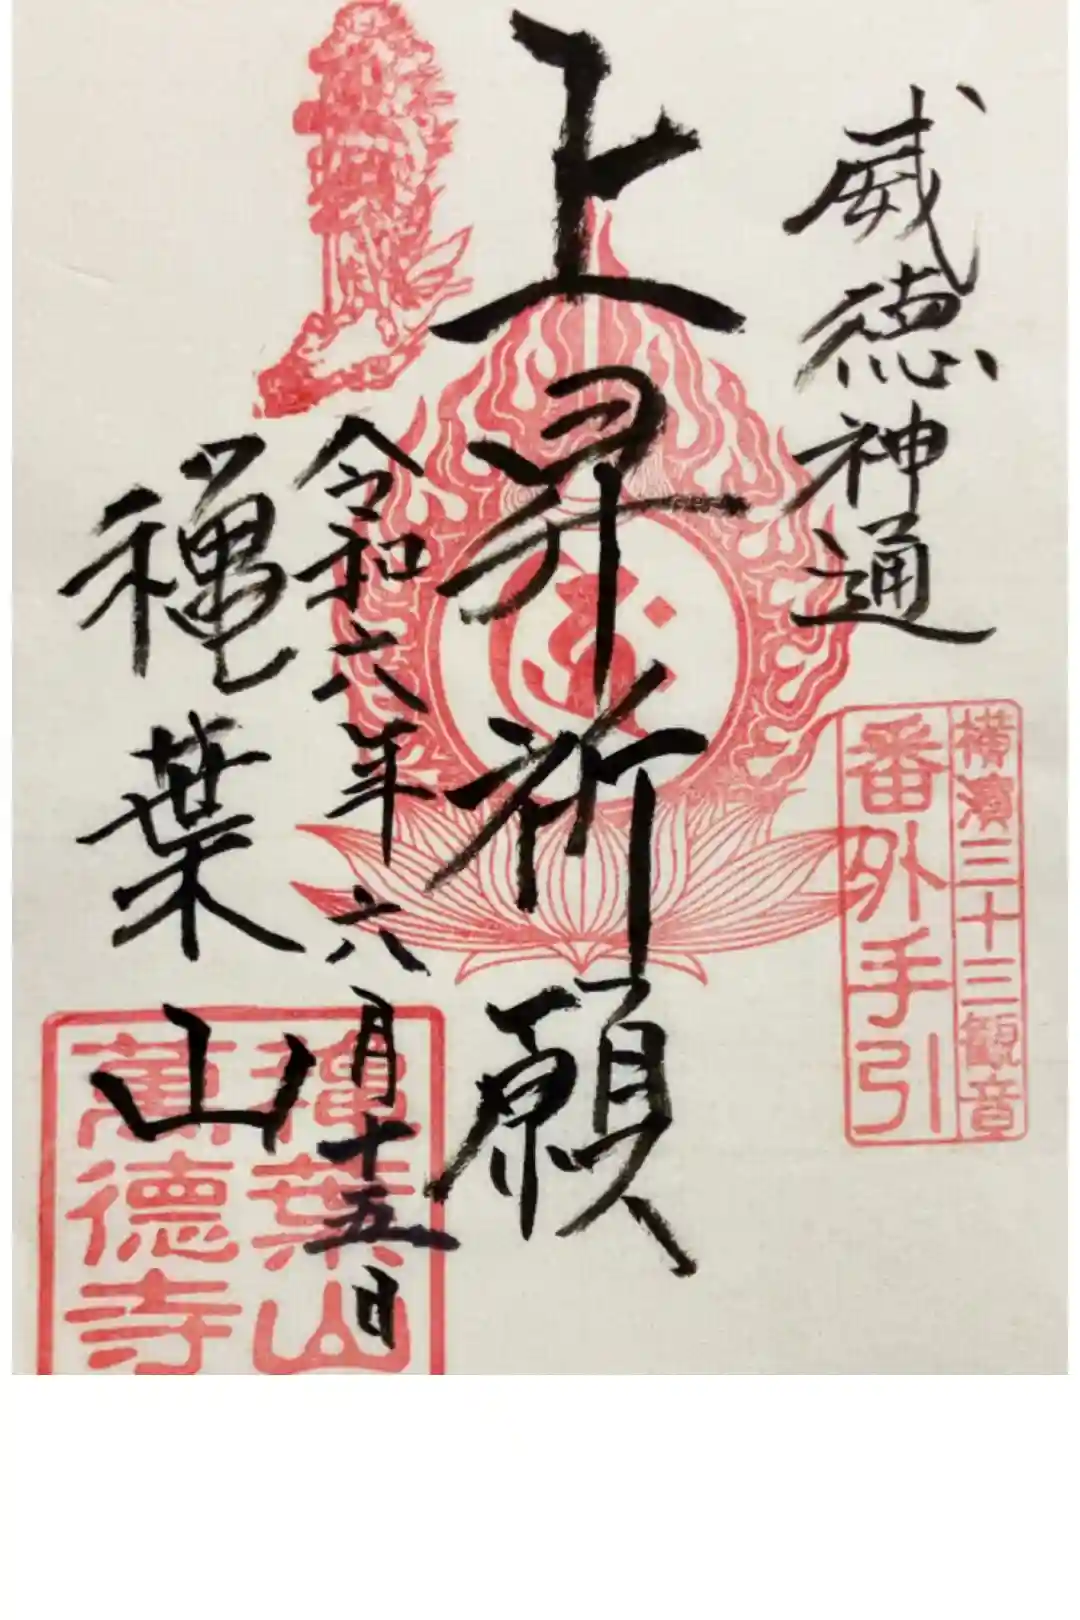 威徳神通
横濱三十三観音
番外手引
上昇祈願
令和六年六月十五日
穐葉山
穐葉山
萬徳寺